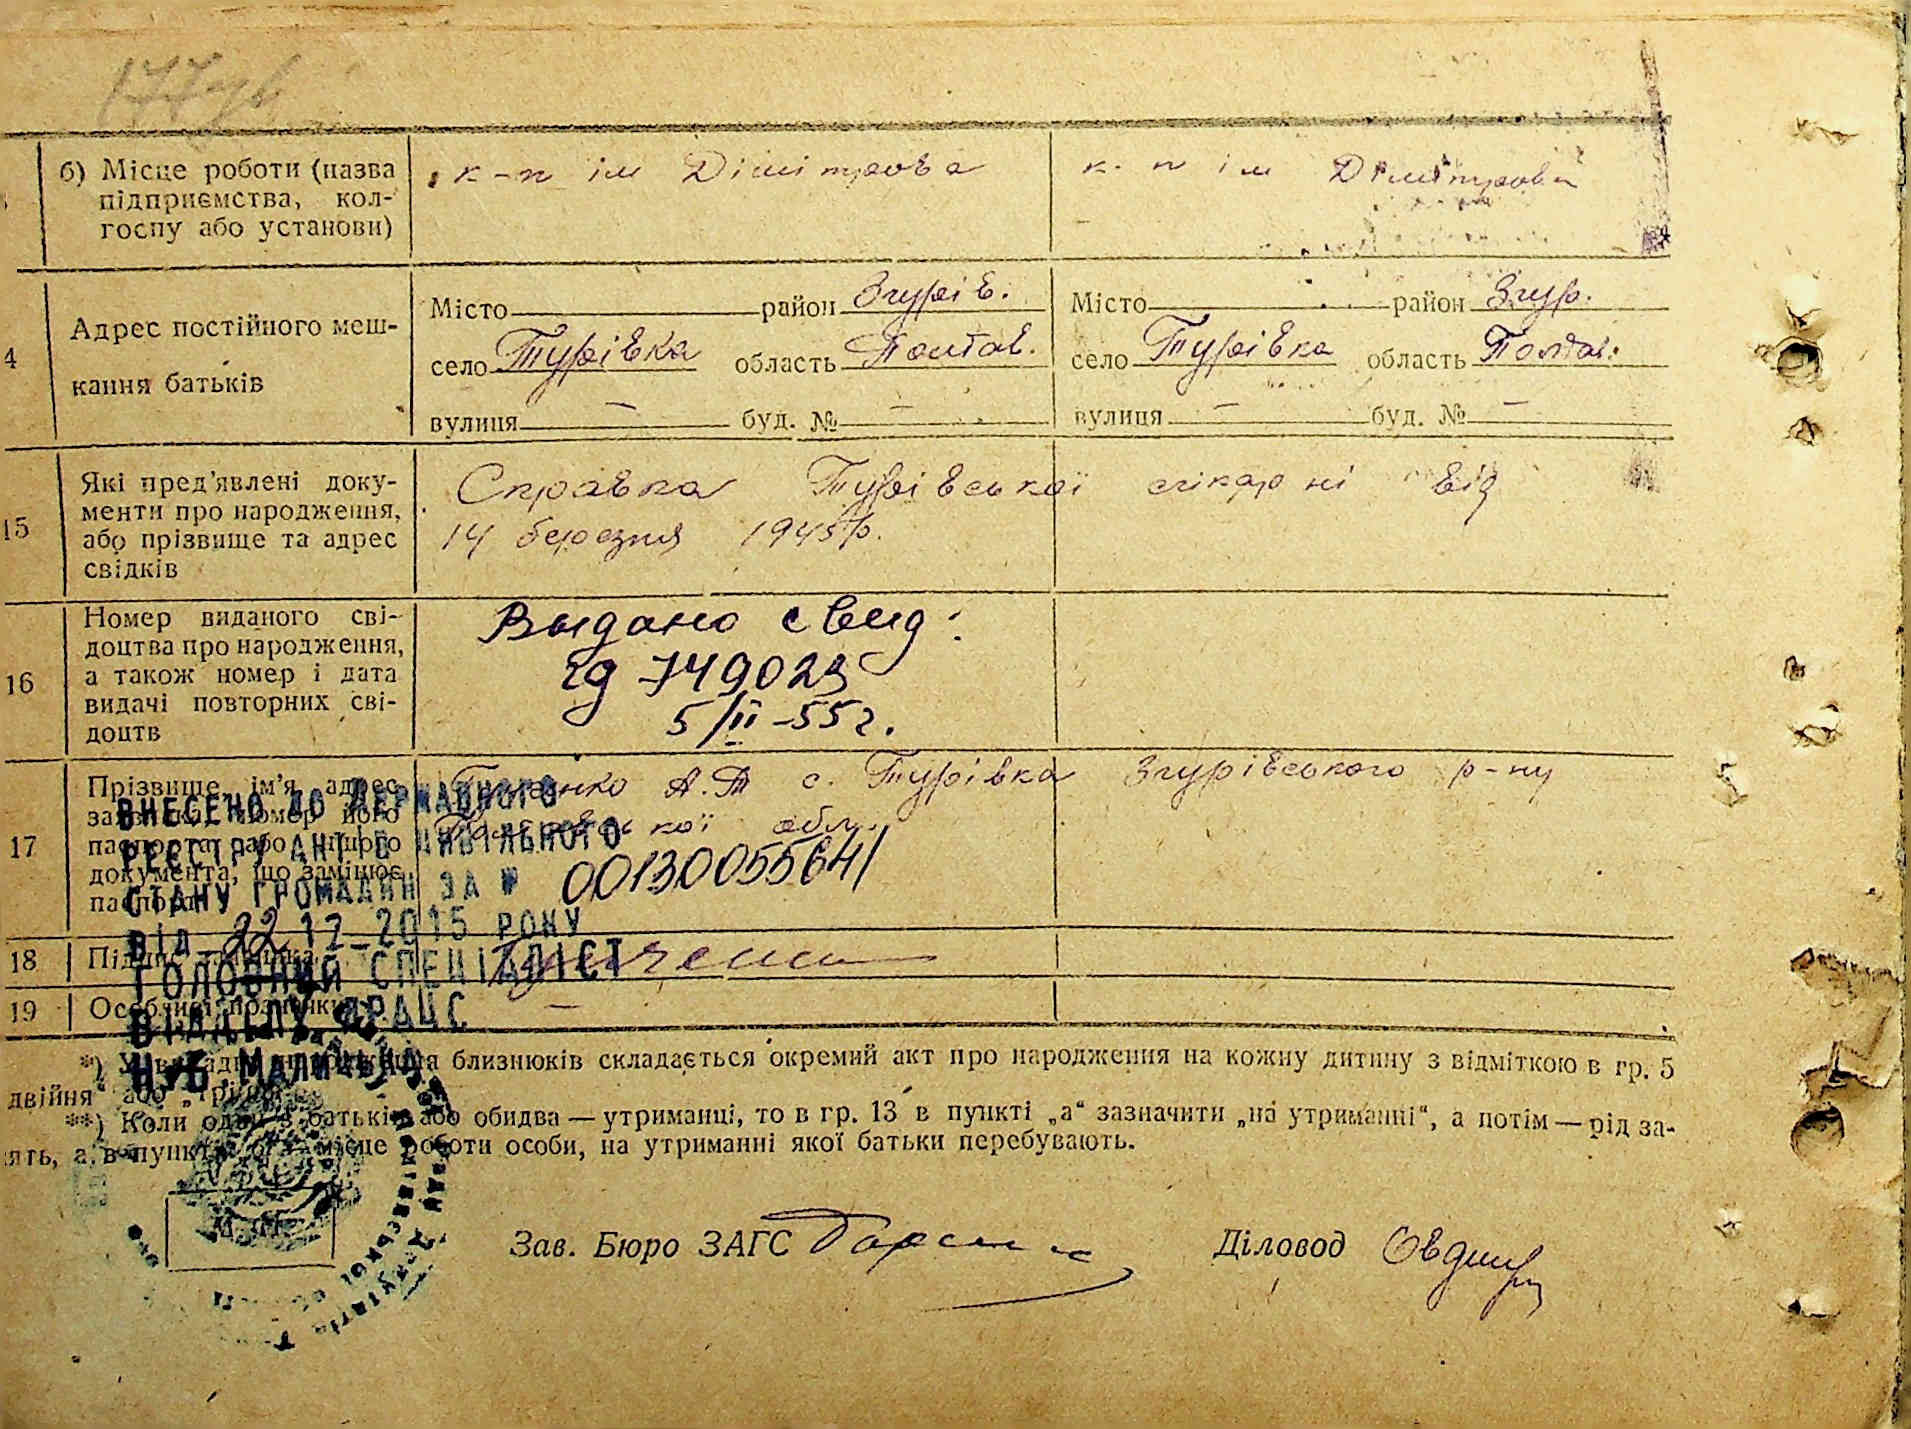 б) Місце роботи (назва
підприємства, кол-
госпу або установи)
к-п ім Дімітрова
к-п ім Дімітрова
4
Адрес постійного меш-
кання батьків
Місто район Згурів.
село Турівка область Полтав.
вулиця — буд. № —
Місто район Згур.
село Турівка область Полтав.
вулиця — буд. № —
15
Які пред'явлені доку-
менти про народження,
або прізвище та адрес
свідків
Справка Турівської лікарні від
14 березня 1945 р.
16
Номер виданого сві-
доцтва про народження,
а також номер і дата
видачі повторних сві-
доцтв
Выдано свид.
749023
5/II-55 г.
17
Прізвище, ім'я, адрес
номер його
або іншого
документа, що замінює
А.Т с. Турівка Згурівського р-ну
обл.
ВНЕСЕНО ДО ДЕРЖАВНОГО
РЕЄСТРУ АКТІВ ЦИВІЛЬНОГО
СТАНУ ГРОМАДЯН ЗА № 00130055641
ВІД 22 12 2015 РОКУ
ГОЛОВНИЙ СПЕЦІАЛІСТ
ВІДДІЛУ ДРАЦС
18
19
—
близнюків складається окремий акт про народження на кожну дитину з відміткою в гр. 5
двійня" або
**) Коли один з батьків або обидва — утриманці, то в гр. 13 в пункті „а" зазначити „на утриманні", а потім — рід за-
ять, а в пункті місце роботи особи, на утриманні якої батьки перебувають.
М. П.
Зав. Бюро ЗАГС
Діловод